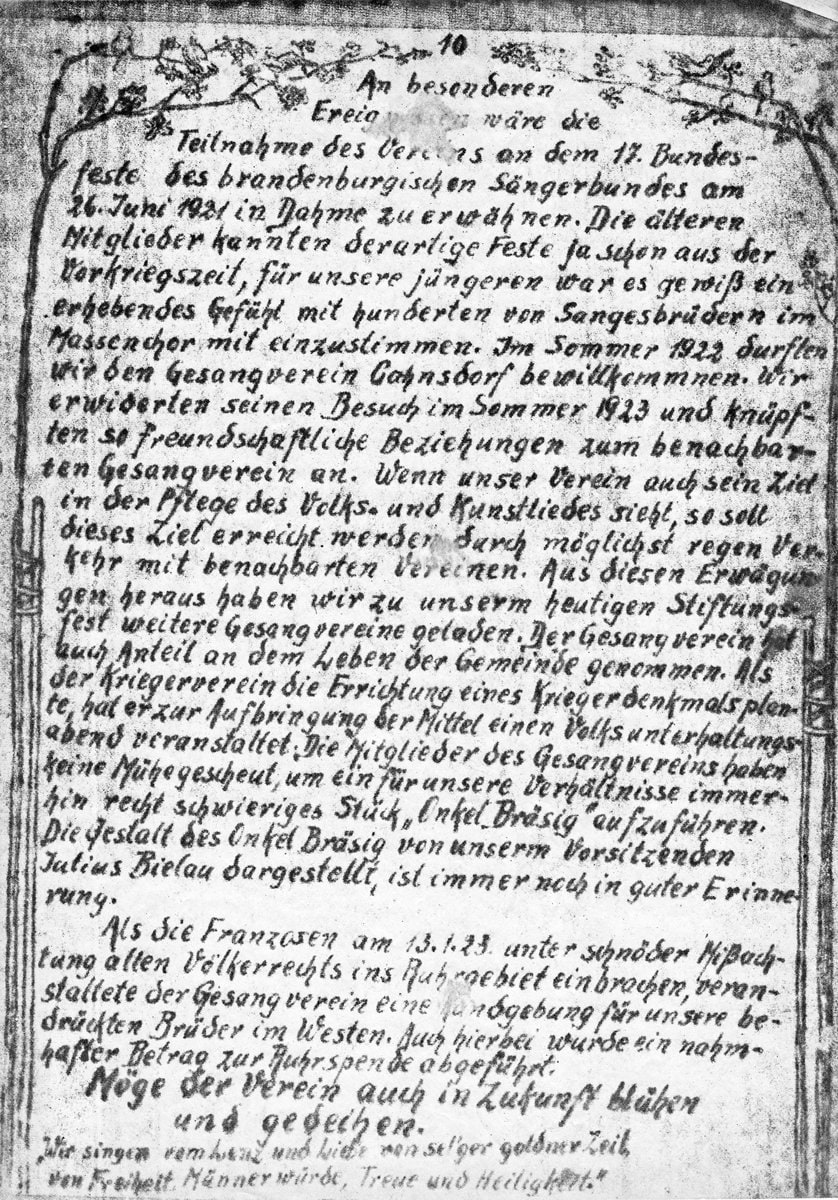 10
An besonderen
Ereignissen wäre die
Teilnahme des Vereins an dem 17. Bundes-
feste des brandenburgischen Sängerbundes am
26. Juni 1921 in Dahme zu erwähnen. Die älteren
Mitglieder kannten derartige Feste ja schon aus der
Vorkriegszeit, für unsere jüngeren war es gewiß ein
erhebendes Gefühl mit hunderten von Sangesbrüdern im
Massenchor mit einzustimmen. Im Sommer 1922 durften
wir den Gesangverein Cahnsdorf bewillkommnen. Wir
erwiderten seinen Besuch im Sommer 1923 und knüpf-
ten so freundschaftliche Beziehungen zum benachbar-
ten Gesangverein an. Wenn unser Verein auch sein Ziel
in der Pflege des Volks- und Kunstliedes sieht, so soll
dieses Ziel erreicht werden durch möglichst regen Ver-
kehr mit benachbarten Vereinen. Aus diesen Erwägun-
gen heraus haben wir zu unserm heutigen Stiftungs-
fest weitere Gesangvereine geladen. Der Gesangverein hat
auch Anteil an dem Leben der Gemeinde genommen. Als
der Kriegerverein die Errichtung eines Kriegerdenkmals plan-
te, hat er zur Aufbringung der Mittel einen Volksunterhaltungs-
abend veranstaltet. Die Mitglieder des Gesangvereins haben
keine Mühe gescheut, um ein für unsere Verhältnisse immer-
hin recht schwieriges Stück „Onkel Bräsig" aufzuführen.
Die Gestalt des Onkel Bräsig von unserm Vorsitzenden
Julius Bielau dargestellt, ist immer noch in guter Erinne-
rung.
Als die Franzosen am 13.1.23. unter schnöder Mißach-
tung alten Völkerrechts ins Ruhrgebiet einbrachen, veran-
staltete der Gesangverein eine Kundgebung für unsere be-
drückten Brüder im Westen. Auch hierbei wurde ein nahm-
hafter Betrag zur Ruhrspende abgeführt.
Möge der Verein auch in Zukunft blühen
und gedeihen.
„Wir singen vom Lenz und Liebe von sel'ger goldner Zeit,
von Freiheit, Männerwürde, Treue und Heiligkeit."